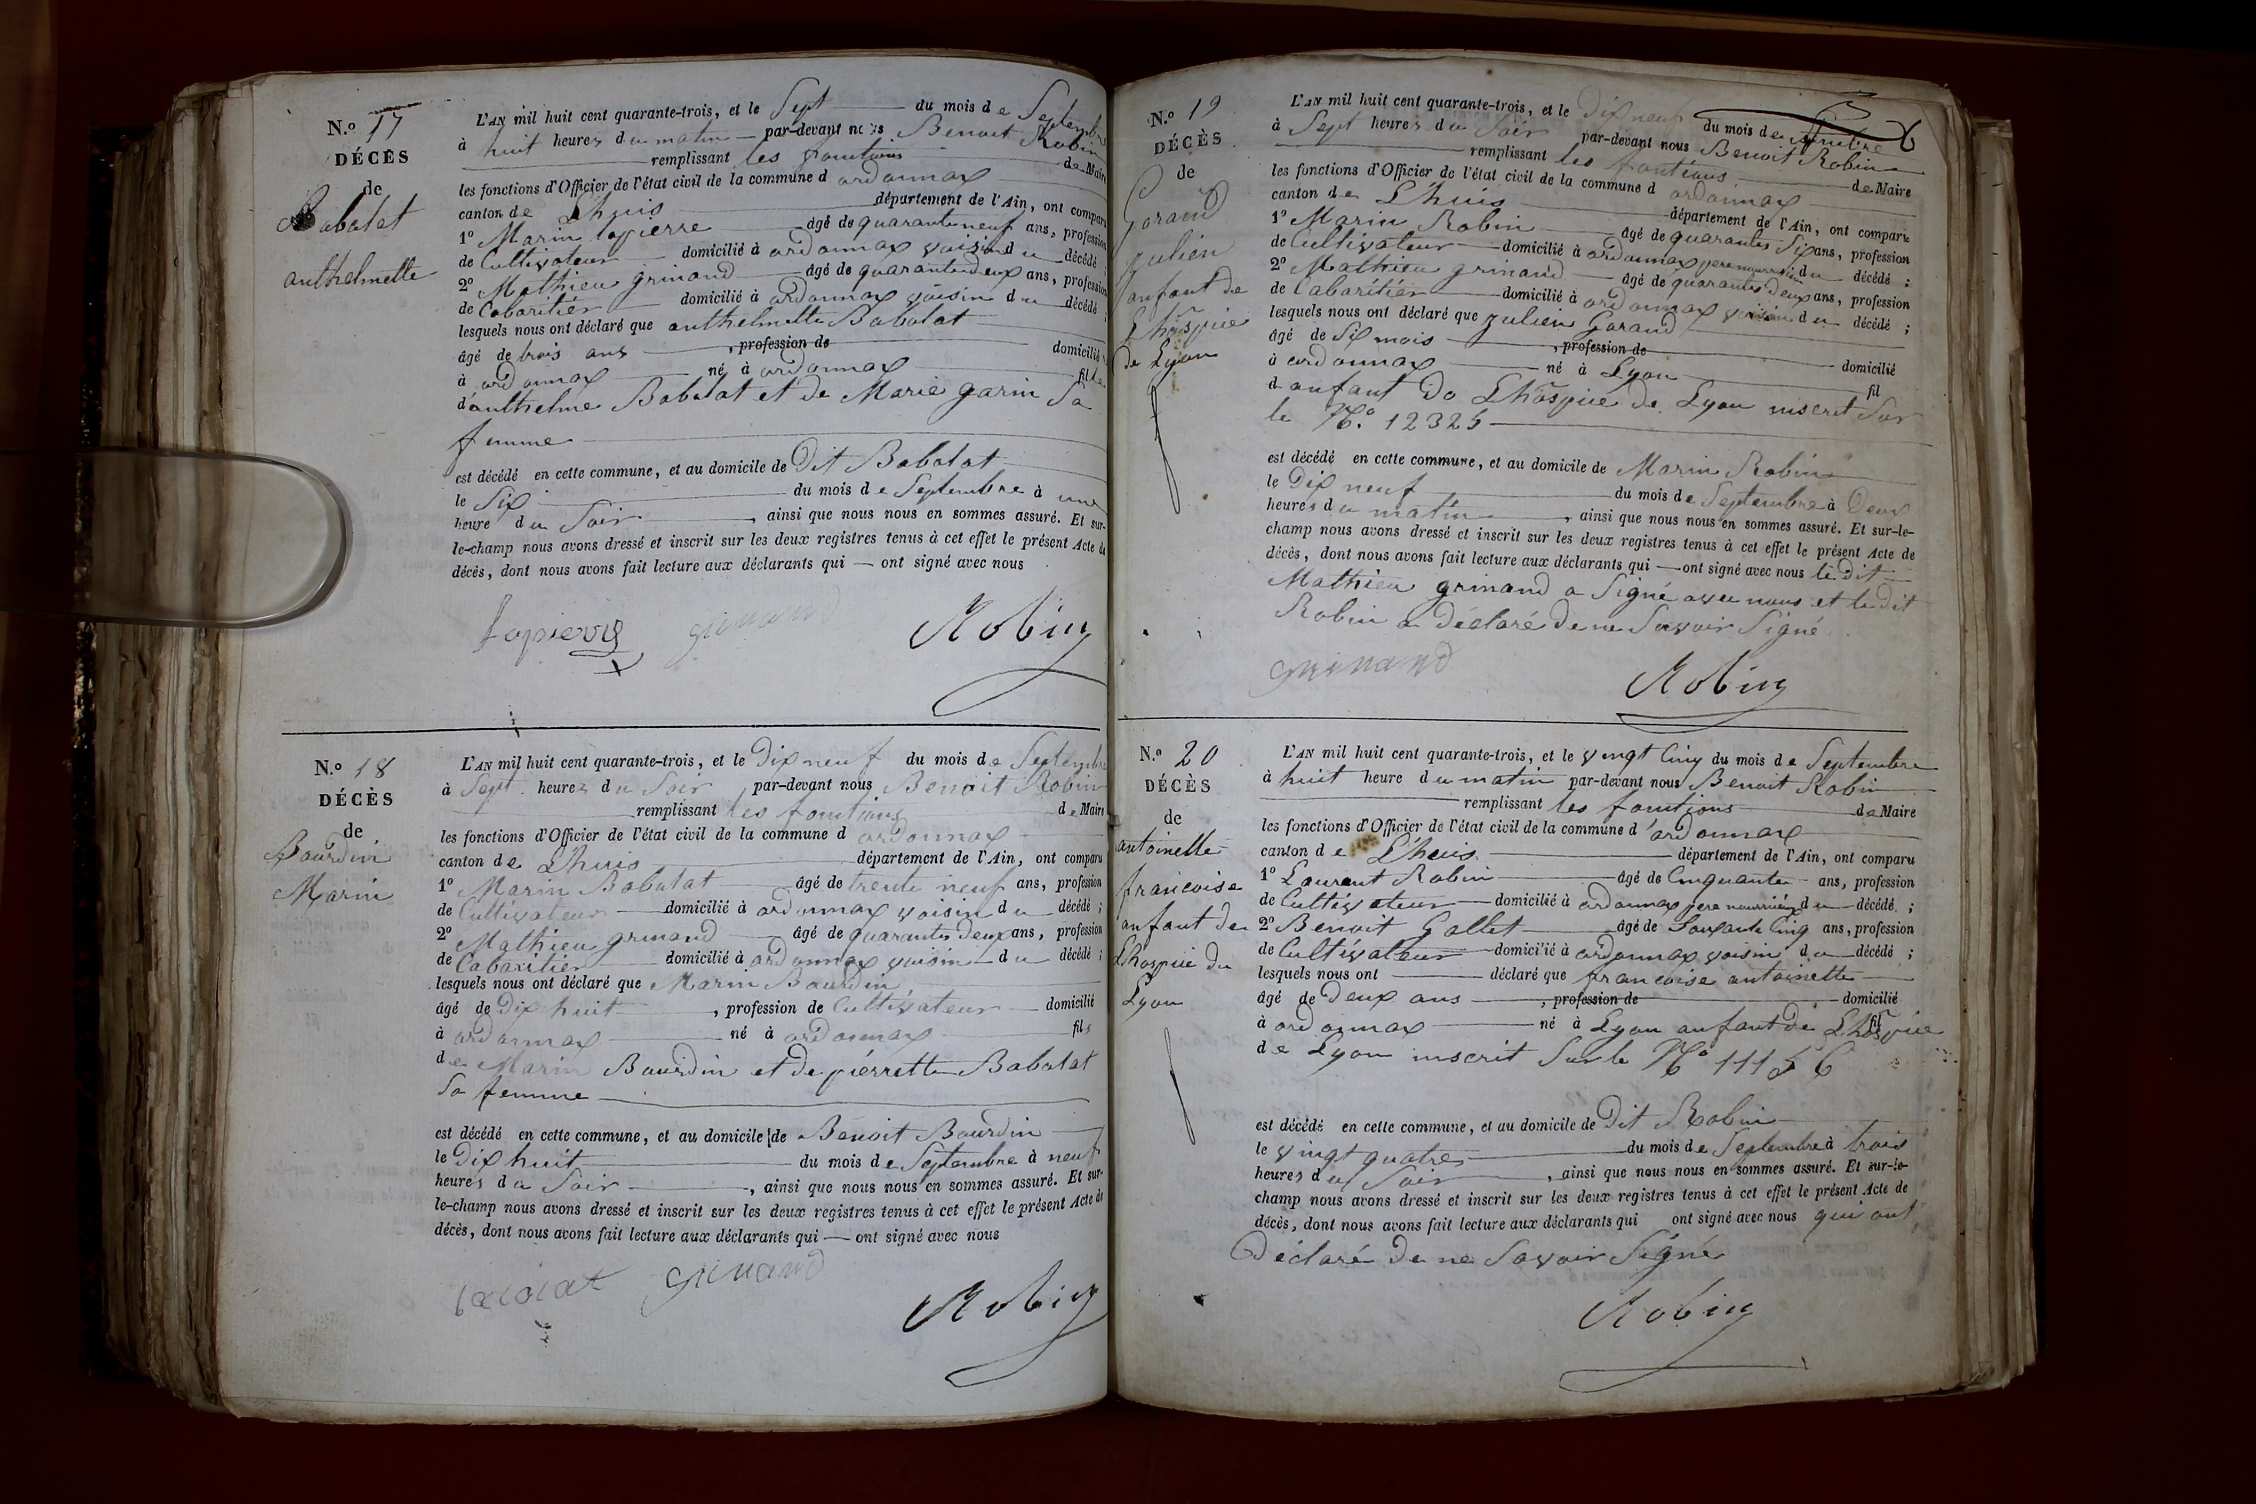 N.º 17
DÉCÈS
de
Babolat
anthelmette
L'AN mil huit cent quarante-trois, et le Sept du mois de Septembre
à huit heures du matin par-devant nous Benoit Robin
remplissant les fonctions de Maire
les fonctions d'Officier de l'état civil de la commune d ordonnax
canton de Lhuis département de l'Ain, ont comparu
1º Marin lapierre âgé de quarante neuf ans, profession
de Cultivateur domicilié à ordonnax voisin du décédé ;
2º Mathieu grinand âgé de quarante deux ans, profession
de Cabaritier domicilié à ordonnax voisin du décédé ;
lesquels nous ont déclaré que anthelmette Babolat
âgé de trois ans , profession de domicilié
à ordonnax né à ordonnax fille
d'anthelme Babolat et de Marie garin Sa
femme
est décédé en cette commune, et au domicile de Dit Babolat
le Six du mois de Septembre à une
heure du Soir , ainsi que nous nous en sommes assuré. Et sur-
le-champ nous avons dressé et inscrit sur les deux registres tenus à cet effet le présent Acte de
décès, dont nous avons fait lecture aux déclarants qui — ont signé avec nous
lapierre grinand Robin
N.º 18
DÉCÈS
de
Bourdin
Marin
L'AN mil huit cent quarante-trois, et le Dix neuf du mois de Septembre
à Sept heures du Soir par-devant nous Benoit Robin
remplissant les fonctions de Maire
les fonctions d'Officier de l'état civil de la commune d ordonnax
canton de Lhuis département de l'Ain, ont comparu
1º Marin Babolat âgé de trente neuf ans, profession
de Cultivateur domicilié à ordonnax voisin du décédé ;
2º Mathieu grinand âgé de quarante deux ans, profession
de Cabaritier domicilié à ordonnax voisin du décédé ;
lesquels nous ont déclaré que Marin Bourdin
âgé de Dix huit , profession de Cultivateur domicilié
à ordonnax né à ordonnax fils
de Marin Bourdin et de pierrette Babolat
Sa femme
est décédé en cette commune, et au domicile de Benoit Bourdin
le Dix huit du mois de Septembre à neuf
heures du Soir , ainsi que nous nous en sommes assuré. Et sur-
le-champ nous avons dressé et inscrit sur les deux registres tenus à cet effet le présent Acte de
décès, dont nous avons fait lecture aux déclarants qui — ont signé avec nous
grinand Robin
N.º 19
DÉCÈS
de
Garand
Julien
anfant de
Lhospice
de Lyon
L'AN mil huit cent quarante-trois, et le Dix neuf du mois de
à Sept heures du Soir par-devant nous Benoit Robin
remplissant les fonctions de Maire
les fonctions d'Officier de l'état civil de la commune d ordonnax
canton de Lhuis département de l'Ain, ont comparu
1º Marin Robin âgé de quarante Six ans, profession
de Cultivateur domicilié à ordonnax pere nourricier du décédé ;
2º Mathieu grinand âgé de quarante deux ans, profession
de Cabaritiér domicilié à ordonnax voisin du décédé ;
lesquels nous ont déclaré que Julien Garand
âgé de Six mois , profession de domicilié
à ordonnax né à Lyon fil
d anfant Do Lhospice de Lyon inscrit Sur
le Nº. 12325
est décédé en cette commune, et au domicile de Marin Robin
le Dix neuf du mois de Septembre à Deux
heures du matin , ainsi que nous nous en sommes assuré. Et sur-le-
champ nous avons dressé et inscrit sur les deux registres tenus à cet effet le présent Acte de
décès, dont nous avons fait lecture aux déclarants qui — ont signé avec nous le Dit
Mathieu grinand a Signé avec nous et le dit
Robin a Déclaré De ne Savoir Signé
grinand Robin
N.º 20
DÉCÈS
de
antoinette
francoise
anfant de
Lhospice du
Lyon
L'AN mil huit cent quarante-trois, et le vingt Cinq du mois de Septembre
à huit heure du matin par-devant nous Benoit Robin
remplissant les fonctions de Maire
les fonctions d'Officier de l'état civil de la commune d'ordonnax
canton de Lhuis département de l'Ain, ont comparu
1º Laurent Robin âgé de Cinquante ans, profession
de Cultivateur domicilié à ordonnax pere nourricier du décédé ;
2º Benoit Gallet âgé de Soixante Cinq ans, profession
de Cultivateur domicilié à ordonnax voisin du décédé ;
lesquels nous ont déclaré que francoise antoinette
âgé de Deux ans , profession de domicilié
à ordonnax né à Lyon anfant de Lhospice fil
de Lyon inscrit Sur le Nº 11156
est décédé en cette commune, et au domicile de Dit Robin
le vingt quatre du mois de Septembre à trois
heures du Soir , ainsi que nous nous en sommes assuré. Et sur-le-
champ nous avons dressé et inscrit sur les deux registres tenus à cet effet le présent Acte de
décès, dont nous avons fait lecture aux déclarants qui ont signé avec nous qui ont
Déclaré De ne Savoir Signé
Robin